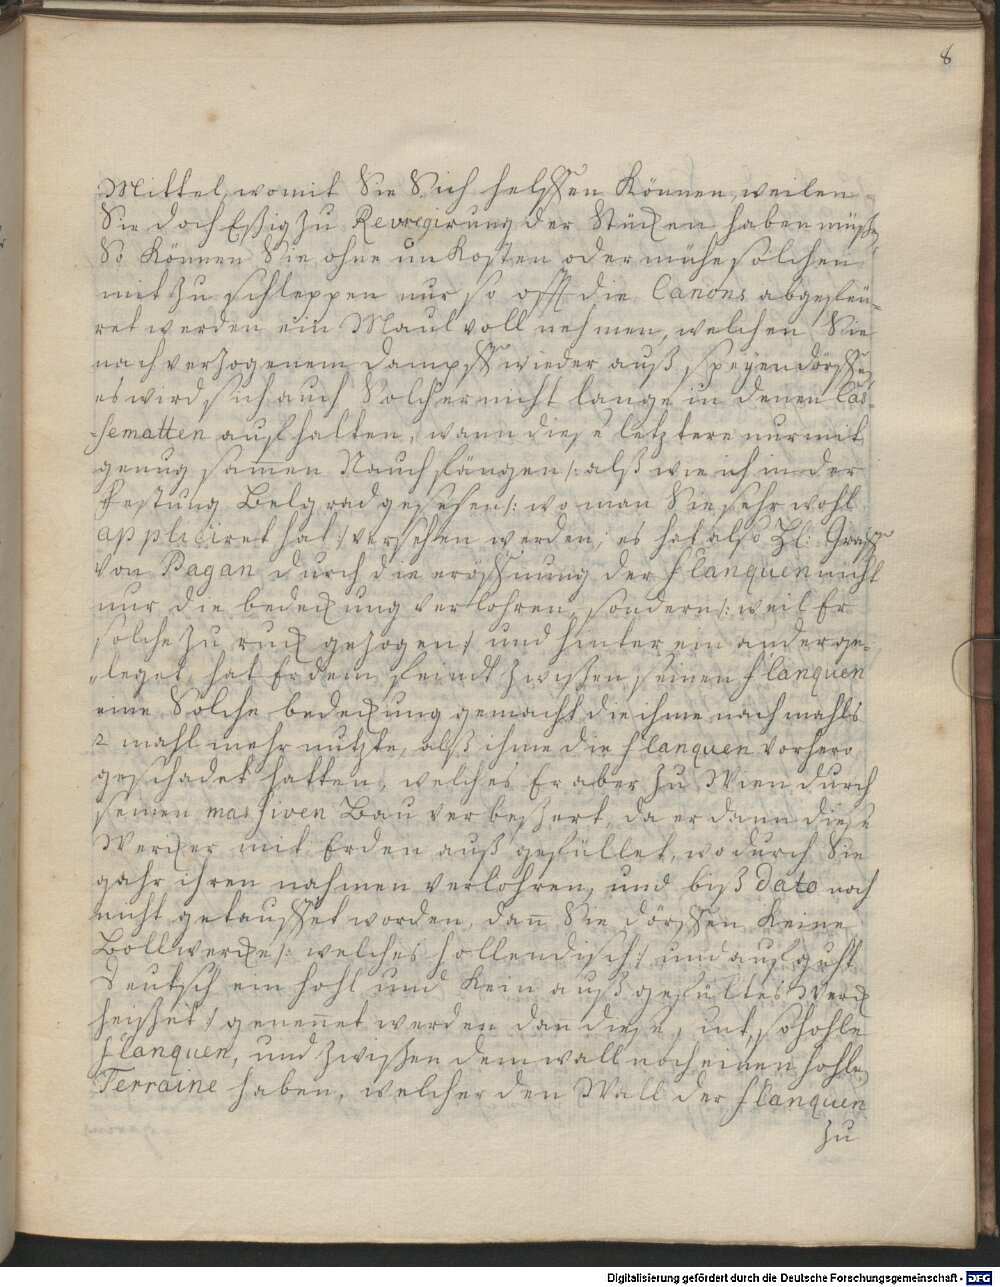 8
Mittel, womit Sie Sich helffen Können, weilen
Sie doch Eßig zu Revregirung der Stücken haben müße,
So Können Sie ohne unKosten oder mühe solchen
mit zu schleppen nur so offt die Canons abgefeü-
ret werden ein Maul voll nehmen, welchen Sie
nach verzogenem dampff wieder auß speyen dörffe,
es wird sich auch Solcher nicht lange in denen Cas-
sematten aufhalten, wann diese letztere nur mit
genug samen Rauchfängen /: alß wie ich in der
Festung Belgrad gesehen /: wo man Sie sehr wohl
appliciret hat :/ versehen werden; es hat also H: Graff
von Pagan durch die eröffnung der flanquen nicht
nur die bedeckung verlohren, sondern /: weil Er
solche zu ruck gezogen :/ und hinter ein ander ge-
leget, hat Er dem feindt zwischen seinen flanquen
eine Solche bedeckung gemacht die ihme nach mahls
2 mahl mehr nutzte, alß ihme die flanquen vorhero
geschadet hatten, welches Er aber zu Wien durch
seinen massiven Bau verbeßert, da er dann diese
Wercker mit Erden auß gefüllet, wo durch Sie
gahr ihren nahmen verlohren, und biß dato noch
nicht getauffet worden, dann Sie dörffen Keine
Bollwercke /: welches hollendisch :/ und auf guht
deutsch ein hohl und Kein auß gefültes Werck
heißet :/ genennet werden dann diese, mit, so hohle
flanquen, und zwischen dem wall noch einen hohle
Terraine haben, welcher den Wall der flanquen
zu
Digitalisierung gefördert durch die Deutsche Forschungsgemeinschaft - DFG